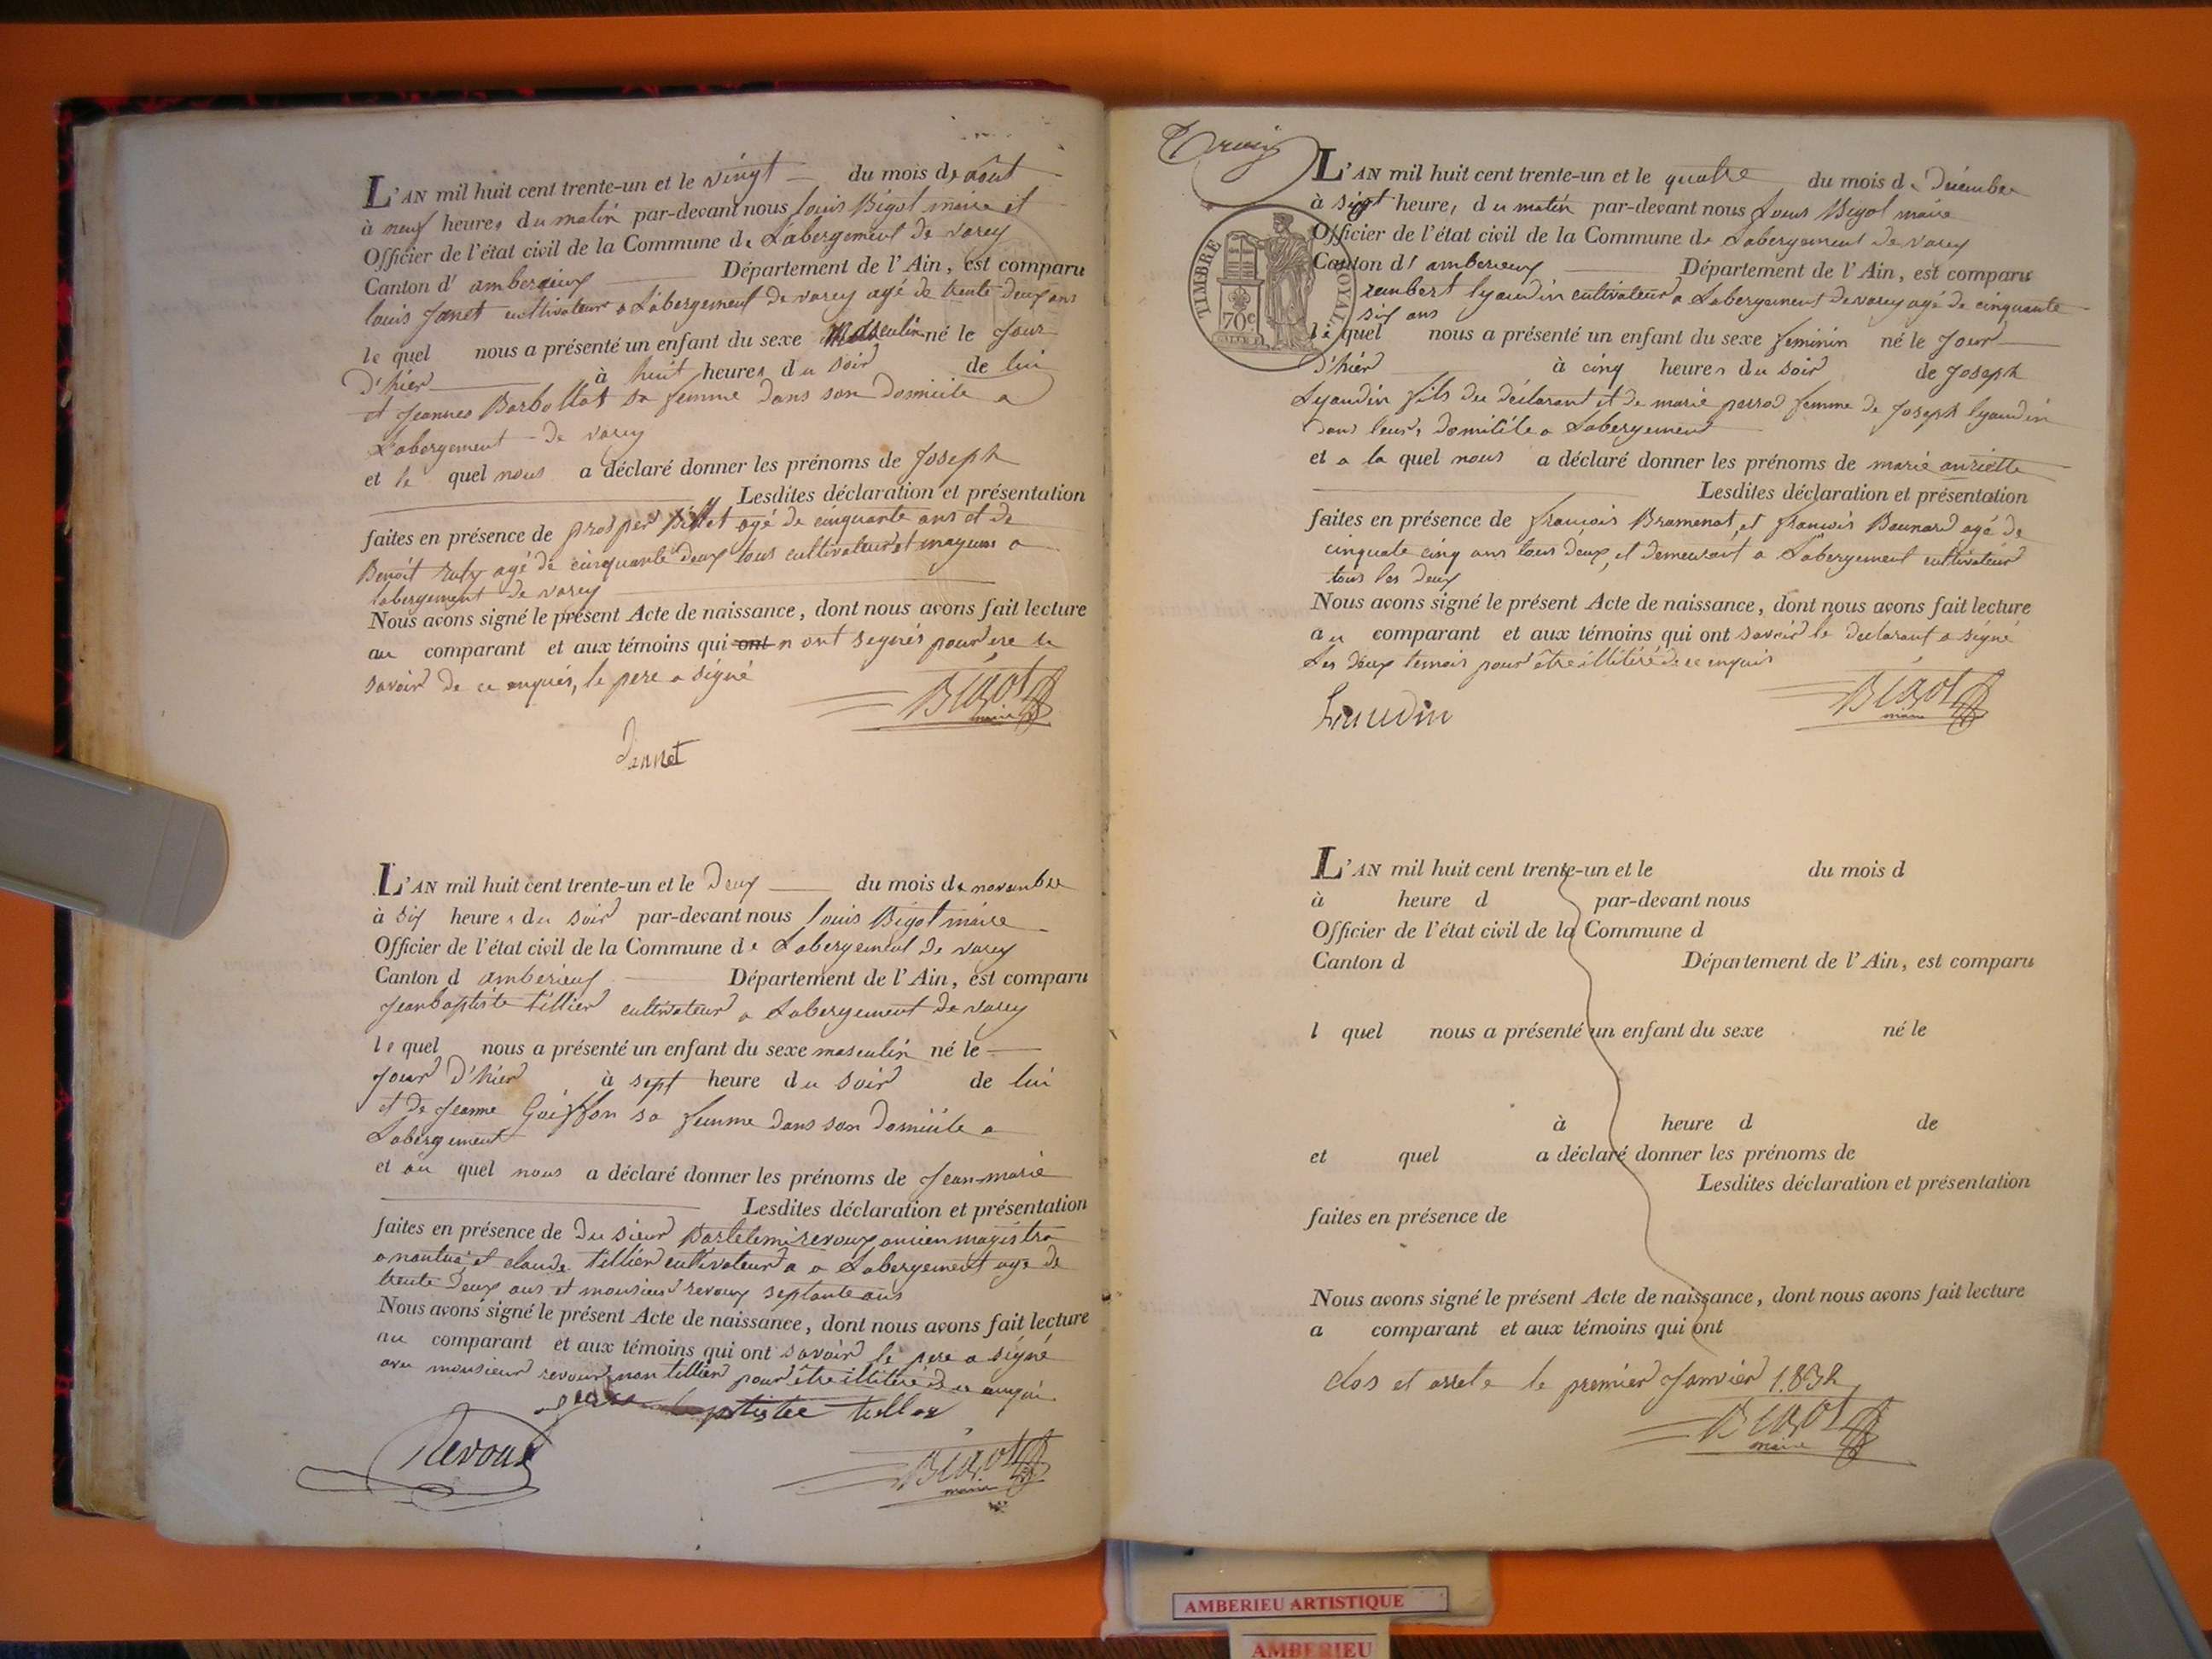 L'AN mil huit cent trente-un et le vingt du mois de août
à neuf heures du matin par-devant nous Louis Bigot maire et
Officier de l'état civil de la Commune de Labergement de varey
Canton d' amberieux Département de l'Ain, est comparu
louis Janet cultivateur a Labergement de varey agé de trente deux ans
le quel nous a présenté un enfant du sexe Masculin né le Jour
d'hier à huit heures du soir de lui
et Jeannes Barbollat sa femme dans son domicile a
Labergement de varey
et le quel nous a déclaré donner les prénoms de Joseph
Lesdites déclaration et présentation
faites en présence de prosper agé de cinquante ans et de
Benoit agé de cinquante deux tous cultivateur et a
labergement de varey
Nous avons signé le présent Acte de naissance, dont nous avons fait lecture
au comparant et aux témoins qui ont n ont segnés pour ne le
savoir de ce enquis, le pere a signé
Bigot
maire
Janet
L'AN mil huit cent trente-un et le Deux du mois de novembre
à six heures du soir par-devant nous Louis Bigot maire
Officier de l'état civil de la Commune de Labergement de varey
Canton d amberieux Département de l'Ain, est comparu
Jean baptiste tillier cultivateur a Labergement de varey
le quel nous a présenté un enfant du sexe masculin né le
Jour d'hier à sept heure du soir de lui
et de Jeanne Goiffon sa femme dans son domicile a
Labergement
et au quel nous a déclaré donner les prénoms de Jean-marie
Lesdites déclaration et présentation
faites en présence de du sieur Bartelemi revoux ancien magistra
a nantua et claude tillier cultivateur a a Labergement age de
trente deux ans et monsieur revoux septante ans
Nous avons signé le présent Acte de naissance, dont nous avons fait lecture
au comparant et aux témoins qui ont savoir le pere a signé
avec monsieur revoux non tillier pour être illitéré de ce enquis
tiller
Revoux
Bigot
maire
Trois
TIMBRE ROYAL
70c
L'AN mil huit cent trente-un et le quatre du mois de Décembre
à sept heures du matin par-devant nous Louis Bigot maire
Officier de l'état civil de la Commune de Labergement de varey
Canton d' amberieux Département de l'Ain, est comparu
rambert lyaudin cultivateur a Labergement de varey agé de cinquante
six ans
le quel nous a présenté un enfant du sexe feminin né le Jour
d'hier à cinq heures du soir de Joseph
Lyaudin fils du déclarant et de marie perrod femme de Joseph lyaudin
dans leurs domicile a Labergement
et a la quel nous a déclaré donner les prénoms de marie anriette
Lesdites déclaration et présentation
faites en présence de francois Bramenat et francois Bounard agé de
cinquate cinq ans tous deux, et demeurant a Labergement cultivateur
tous les deux
Nous avons signé le présent Acte de naissance, dont nous avons fait lecture
au comparant et aux témoins qui ont savoir le declarant a signé
Les deux temoir pour être illitéré de ce enquis
Liaudin
Bigot
maire
L'AN mil huit cent trente-un et le du mois d
à heure d par-devant nous
Officier de l'état civil de la Commune d
Canton d Département de l'Ain, est comparu
l quel nous a présenté un enfant du sexe né le
à heure d de
et quel a déclaré donner les prénoms de
Lesdites déclaration et présentation
faites en présence de
Nous avons signé le présent Acte de naissance, dont nous avons fait lecture
a comparant et aux témoins qui ont
clos et arrete le premier Janvier 1832
Bigot
maire
AMBERIEU ARTISTIQUE
AMBERIEU